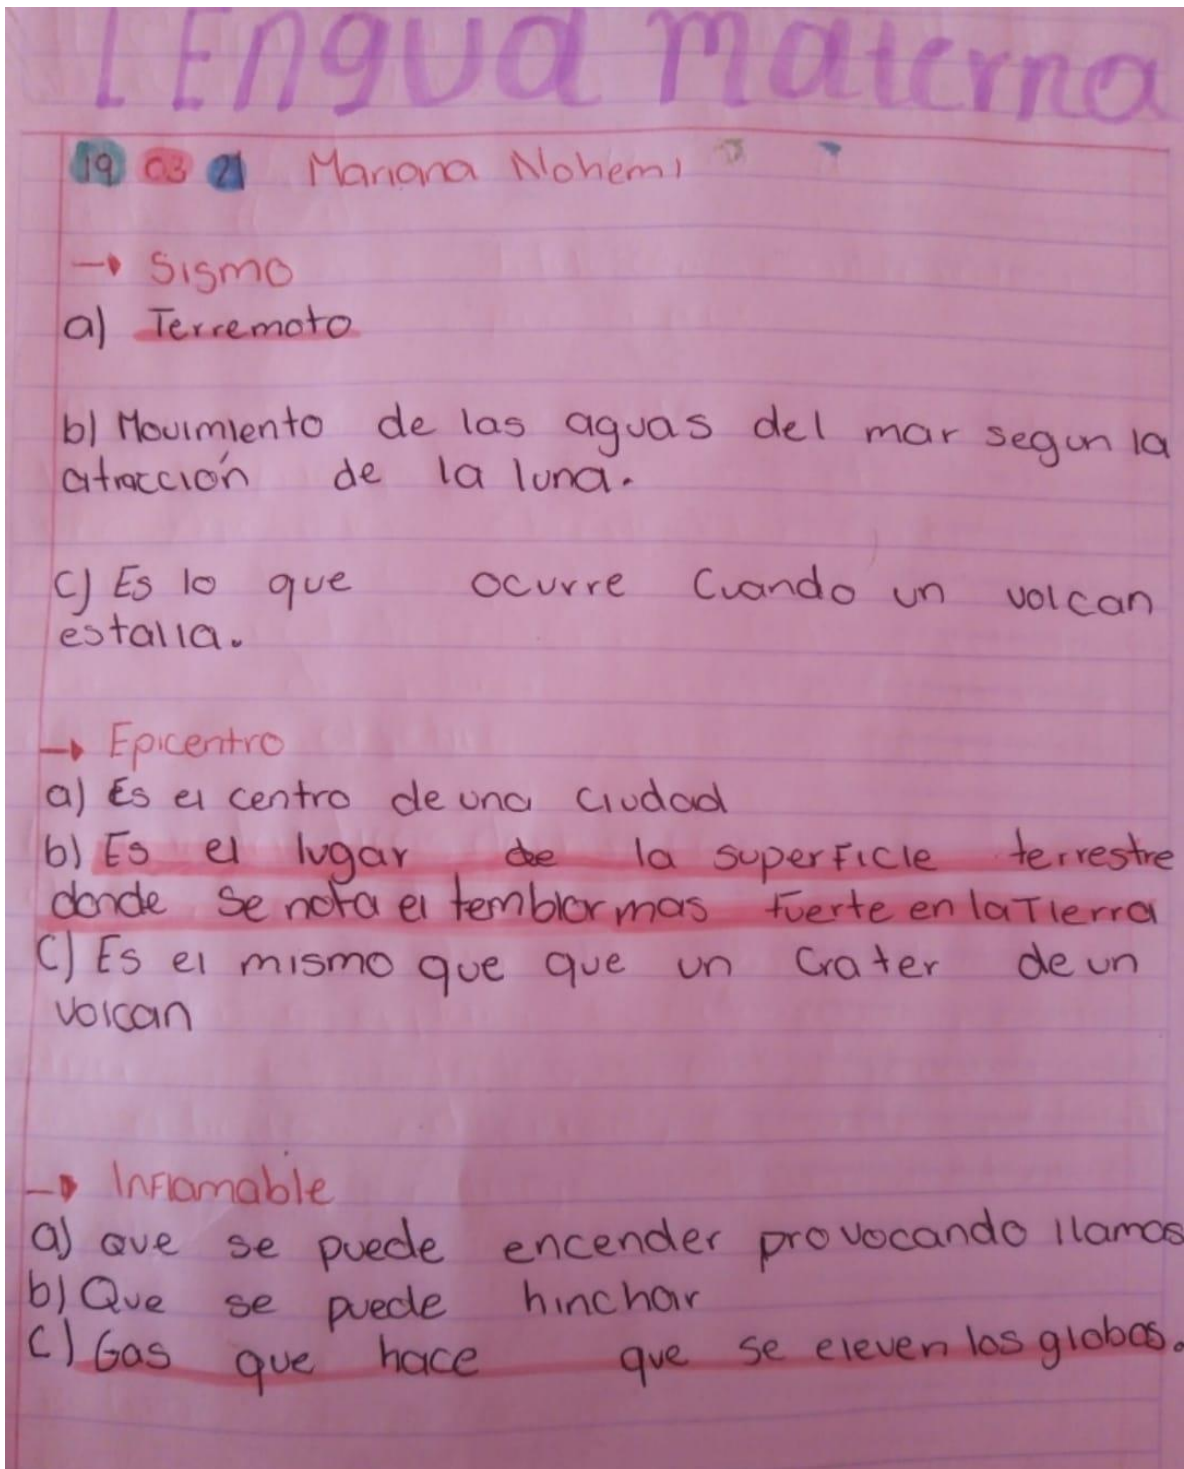 LEngua materna
19 03 21 Mariana Nohemi
→ Sismo
a) Terremoto
b) Movimiento de las aguas del mar segun la
atracción de la luna.
c) Es lo que ocurre Cuando un volcan
estalla.
→ Epicentro
a) Es el centro de una ciudad
b) Es el lugar de la superficie terrestre
donde se nota el temblor mas fuerte en la Tierra
C) Es el mismo que que un Crater de un
volcan
→ Inflamable
a) que se puede encender provocando llamas
b) Que se puede hinchar
c) Gas que hace que se eleven los globos.